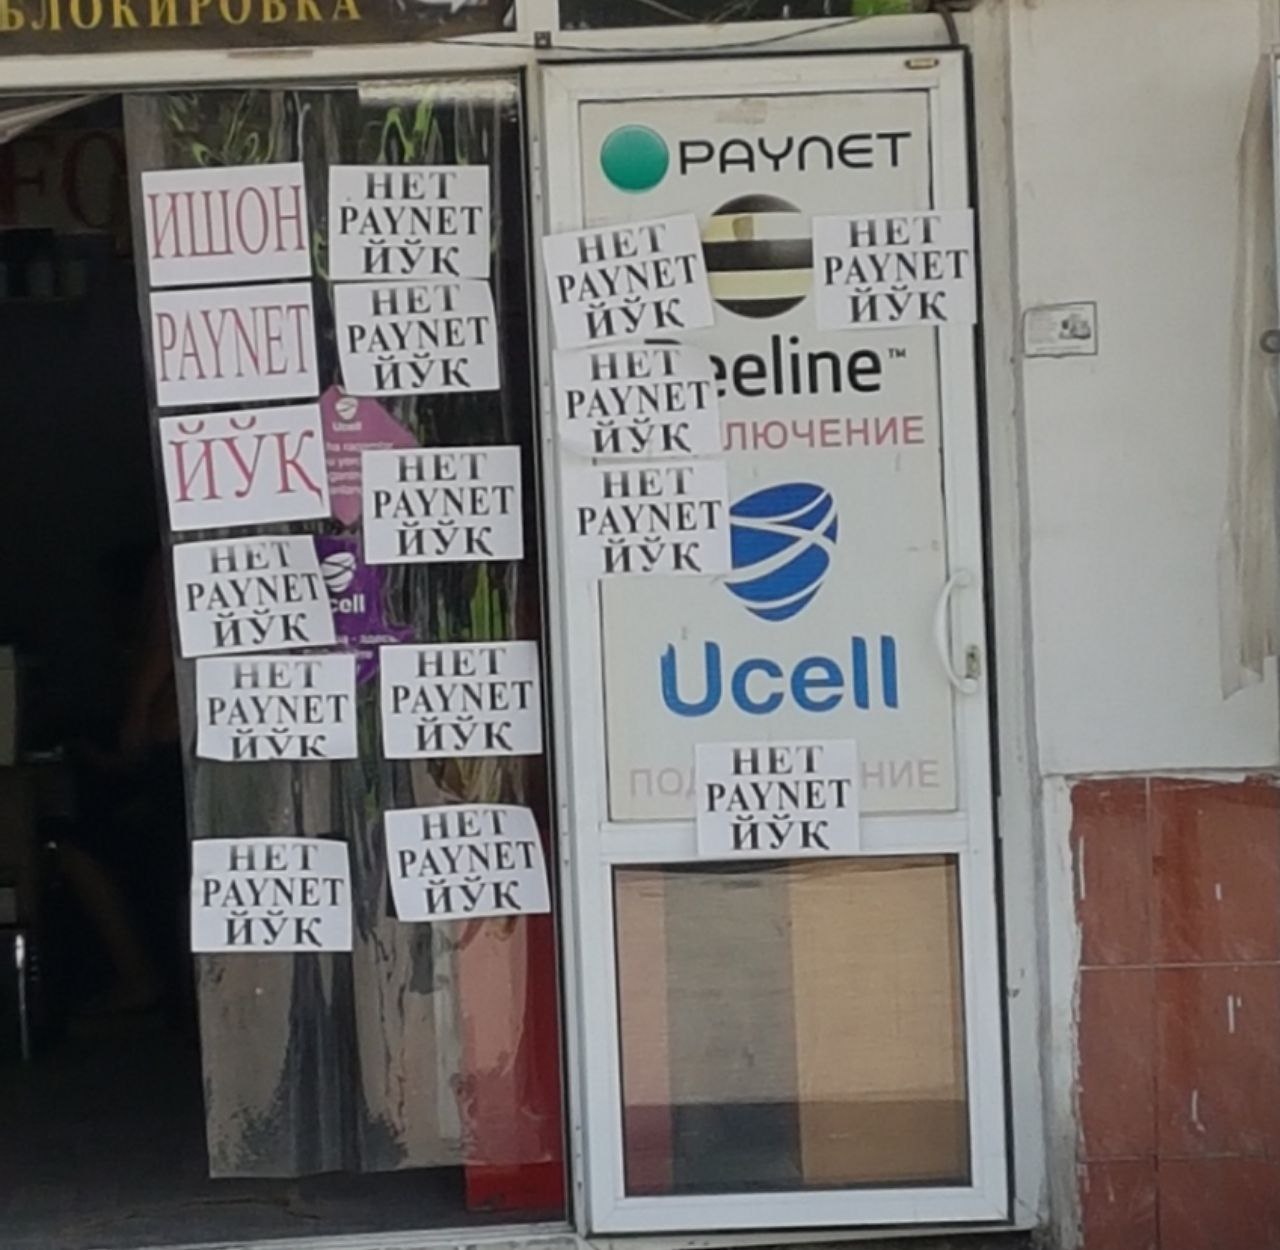 БЛОКИРОВКА
ИШОН
PAYNET
ЙЎҚ
НЕТ
PAYNET
ЙЎҚ
НЕТ
PAYNET
ЙЎҚ
Ucell
НЕТ
PAYNET
ЙЎҚ
НЕТ
PAYNET
ЙЎҚ
НЕТ
PAYNET
ЙЎҚ
НЕТ
PAYNET
ЙЎҚ
НЕТ
PAYNET
ЙЎҚ
НЕТ
PAYNET
ЙЎҚ
PAYNET
НЕТ
PAYNET
ЙЎҚ
НЕТ
PAYNET
ЙЎҚ
eeline™
НЕТ
PAYNET
ЙЎҚ
ЛЮЧЕНИЕ
НЕТ
PAYNET
ЙЎҚ
Ucell
ПОД НИЕ
НЕТ
PAYNET
ЙЎҚ